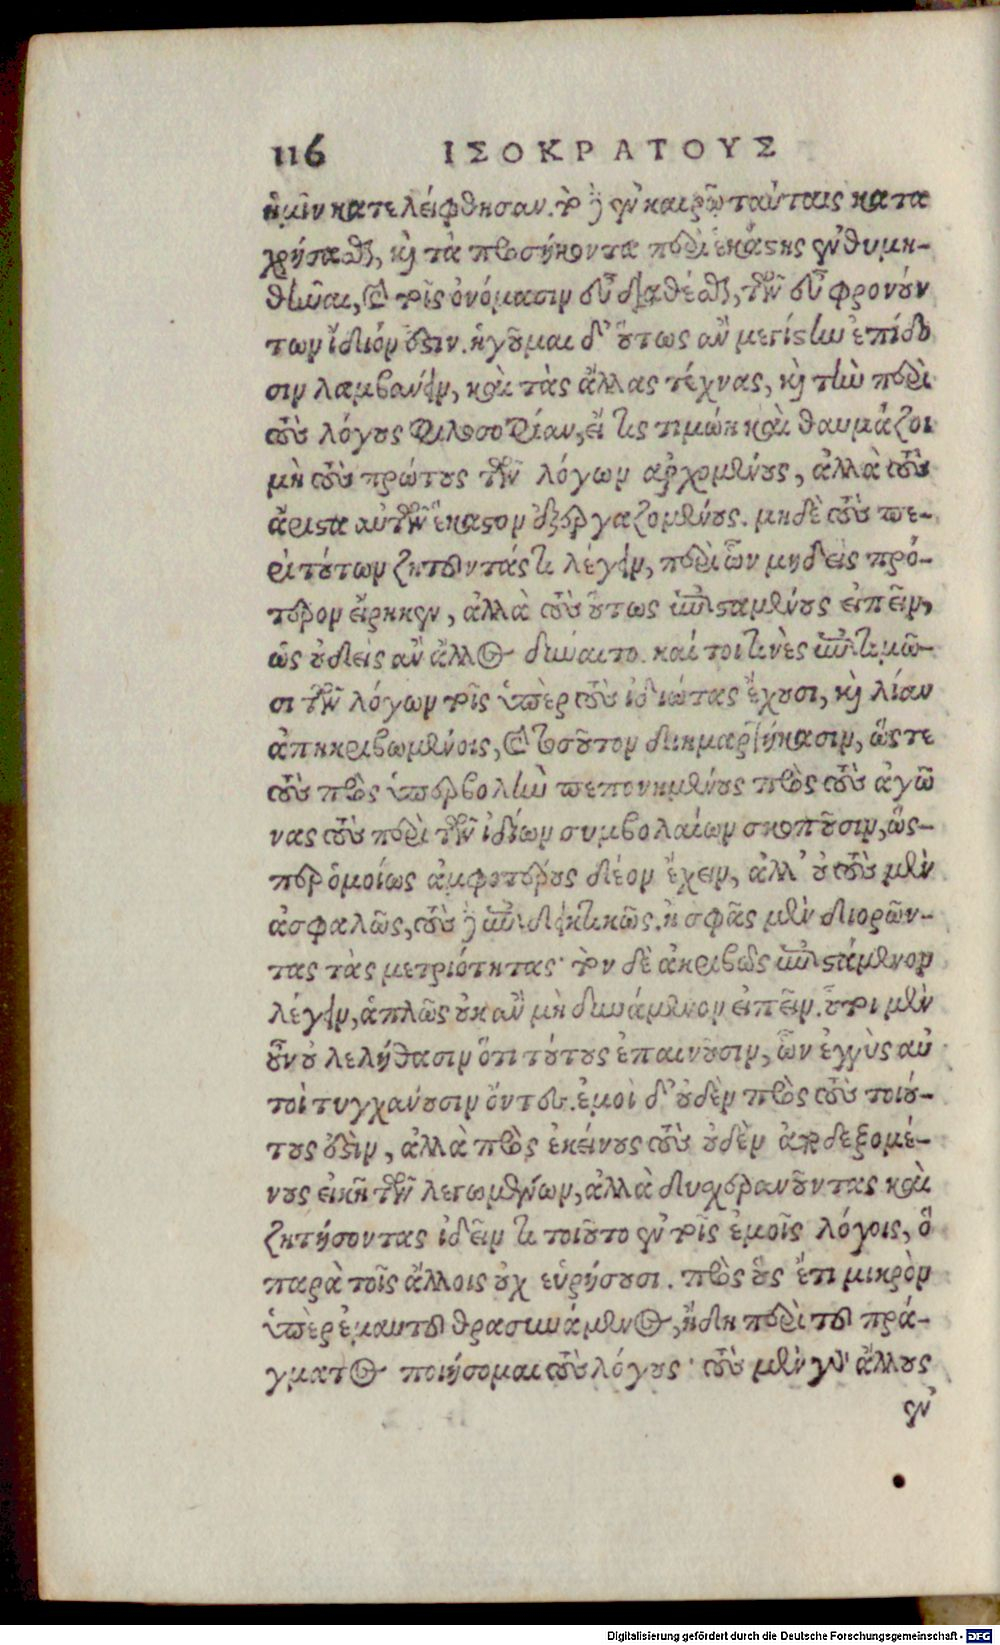 116 ΙΣΟΚΡΑΤΟΥΣ
ἡμῖν κατελείφθησαν. τὸ δὲ ἐν καιρῷ ταύταις κατα
χρήσαϑ, καὶ τὰ προσήκοντα περὶ ἑκάστης ἐνθυμη-
θῆναι, καὶ τοῖς ὀνόμασιν εὖ διαθέσθαι, τῶν εὖ φρονούν
των ἴδιόν ἐστιν. ἡγοῦμαι δ' οὕτως ἂν μεγίστην ἐπίδο
σιν λαμβάνειν, καὶ τὰς ἄλλας τέχνας, καὶ τὴν περὶ
τοὺς λόγους φιλοσοφίαν, εἴ τις τιμώη καὶ θαυμάζοι
μὴ τοὺς πρώτους τῶν λόγων ἀρχομένους, ἀλλὰ τοὺς
ἄριστα αὐτῶν ἕκαστον ἐξεργαζομένους. μηδὲ τοὺς πε-
ρὶ τούτων ζητοῦντάς τι λέγειν, περὶ ὧν μηδεὶς πρό-
τερον εἴρηκεν, ἀλλὰ τοὺς οὕτως ἐπισταμένους εἰπεῖν,
ὡς οὐδεὶς ἂν ἄλλος δύναιτο. καί τοι τινὲς ἐπιτιμῶ-
σι τῶν λόγων τοῖς ὑπὲρ τοὺς ἰδιώτας ἔχουσι, καὶ λίαν
ἀπηκριβωμένοις, καὶ τοσοῦτον διημαρτήκασιν, ὥστε
τοὺς πρὸς ὑπερβολὴν πεπονημένους πρὸς τοὺς ἀγῶ
νας τοὺς περὶ τῶν ἰδίων συμβολαίων σκοποῦσιν, ὥς-
περ ὁμοίως ἀμφοτέρους δέον ἔχειν, ἀλλ' οὐ τοὺς μὲν
ἀσφαλῶς, τοὺς δὲ ἐπιδεικτικῶς. ἢ σφᾶς μὲν διορῶν-
τας τὰς μετριότητας· τὸν δὲ ἀκριβῶς ἐπιστάμενον
λέγειν, ἁπλῶς οὐκ ἂν μὴ δυνάμενον εἰπεῖν. οὗτοι μὲν
οὖν οὐ λελήθασιν ὅτι τούτους ἐπαινοῦσιν, ὧν ἐγγὺς αὐ
τοὶ τυγχάνουσιν ὄντες. ἐμοὶ δ' οὐδὲν πρὸς τοὺς τοιού-
τους ἐστὶν, ἀλλὰ πρὸς ἐκείνους τοὺς οὐδὲν ἀποδεξομέ-
νους εἰκῆ τῶν λεγωμένων, ἀλλὰ δυσχερανοῦντας καὶ
ζητήσοντας ἰδεῖν τι τοιοῦτο ἐν τοῖς ἐμοῖς λόγοις, ὃ
παρὰ τοῖς ἄλλοις οὐχ εὑρήσουσι. πρὸς οὓς ἔτι μικρὸν
ὑπὲρ ἐμαυτοῦ θρασυνάμενος, ἤδη περὶ τοῦ πρά-
γματος ποιήσομαι τοὺς λόγους· τοὺς μὲν γὰρ ἄλλους
ἐν
Digitalisierung gefördert durch die Deutsche Forschungsgemeinschaft - DFG